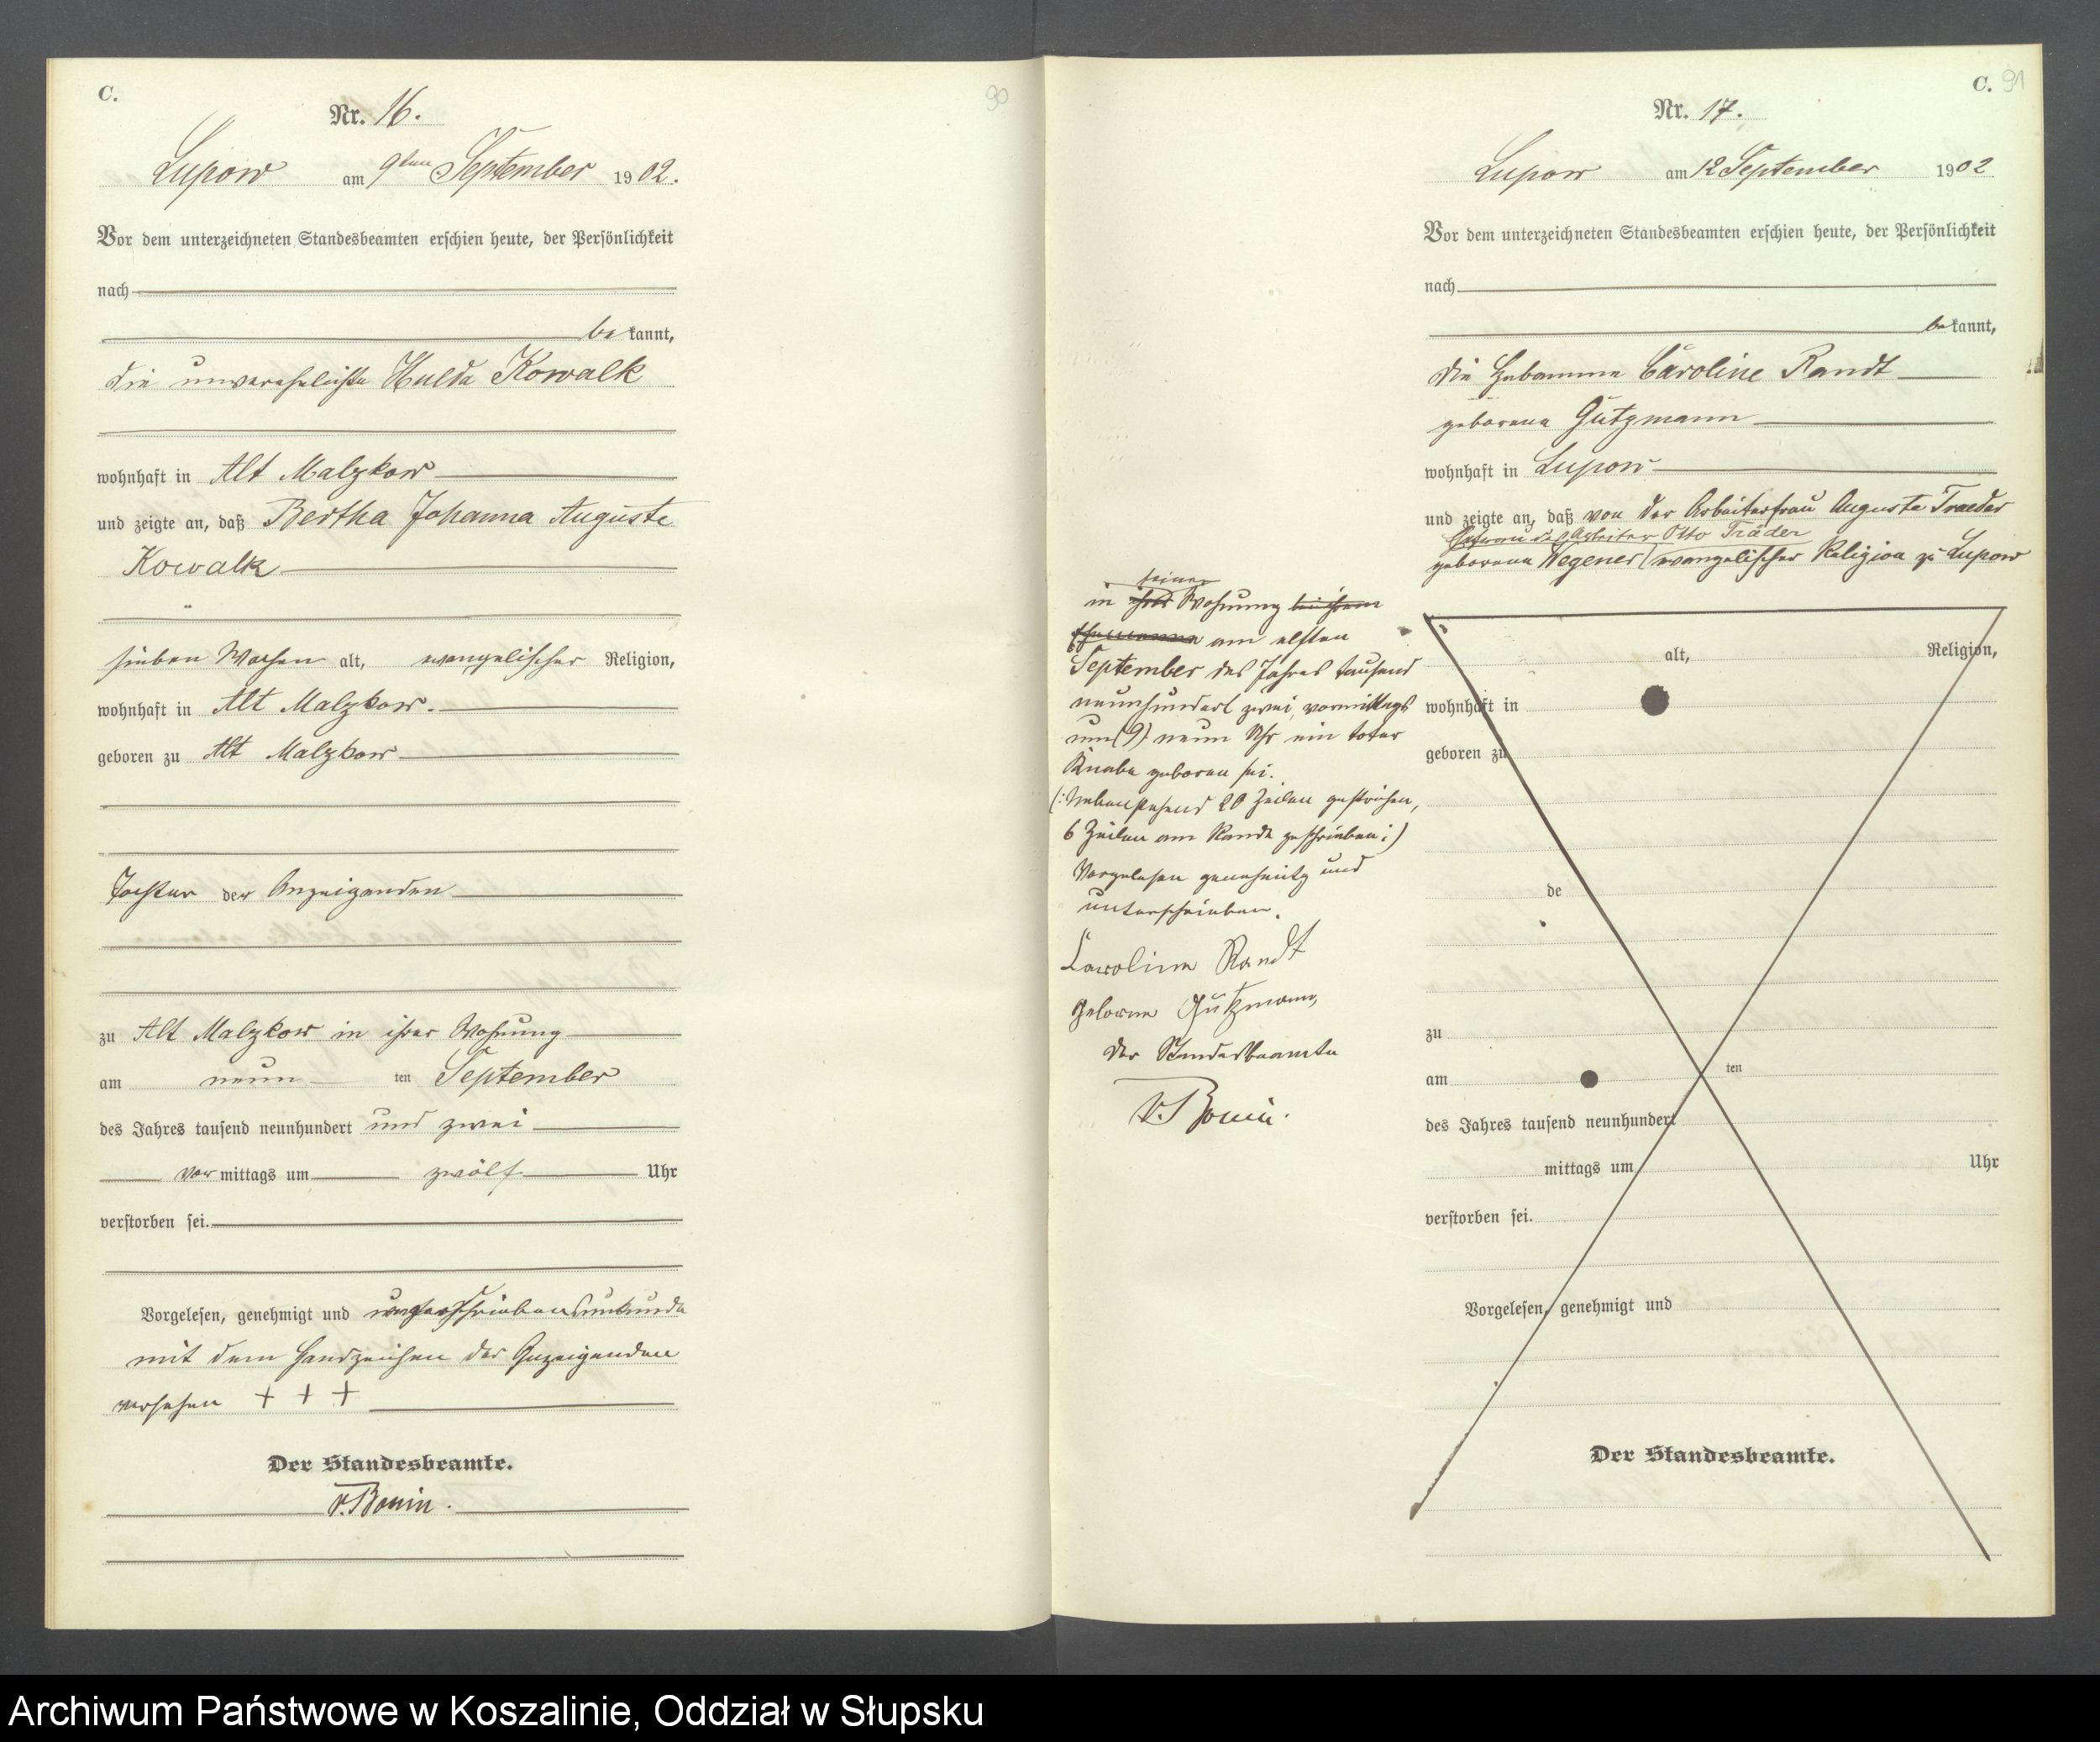 C.
90
Nr. 16.
Lupow am 9ten September 1902.
Vor dem unterzeichneten Standesbeamten erschien heute, der Persönlichkeit
nach
be kannt,
die unverehelichte Hulda Kowalk
wohnhaft in Alt Malzkow
und zeigte an, daß Bertha Johanna Auguste
Kowalk
sieben Wochen alt, evangelischer Religion,
wohnhaft in Alt Malzkow.
geboren zu Alt Malzkow
Tochter der Anzeigenden
zu Alt Malzkow in ihrer Wohnung
am neun ten September
des Jahres tausend neunhundert und zwei
vor mittags um zwölf Uhr
verstorben sei.
Vorgelesen, genehmigt und
mit dem Handzeichen der Anzeigenden
versehen + + +
Der Standesbeamte.
v. Bonin.
C. 91
Nr. 17.
Lupow am 12 September 1902
Vor dem unterzeichneten Standesbeamten erschien heute, der Persönlichkeit
nach
be kannt,
die Hebamme Caroline Randt
geborene Gützmann
wohnhaft in Lupow
und zeigte an, daß von der Arbeiterfrau Auguste Traeder
Ehefrau des Arbeiter Otto Träder
geborene Wegener evangelischer Religion zu Lupow
seiner
in ihrer Wohnung
am elften
September des Jahres tausend
neunhundert zwei, vormittags
um (9) neun Uhr ein toter
Knabe geboren sei.
(: Nebenstehend 20 Zeilen gestrichen,
6 Zeilen am Rande geschrieben :)
Vorgelesen genehmigt und
unterschrieben.
Caroline Randt
geborene Gützmann,
Der Standesbeamte
v. Bonin.
alt, Religion,
wohnhaft in
geboren zu
de
zu
am ten
des Jahres tausend neunhundert
mittags um Uhr
verstorben sei.
Vorgelesen, genehmigt und
Der Standesbeamte.
Archiwum Państwowe w Koszalinie, Oddział w Słupsku